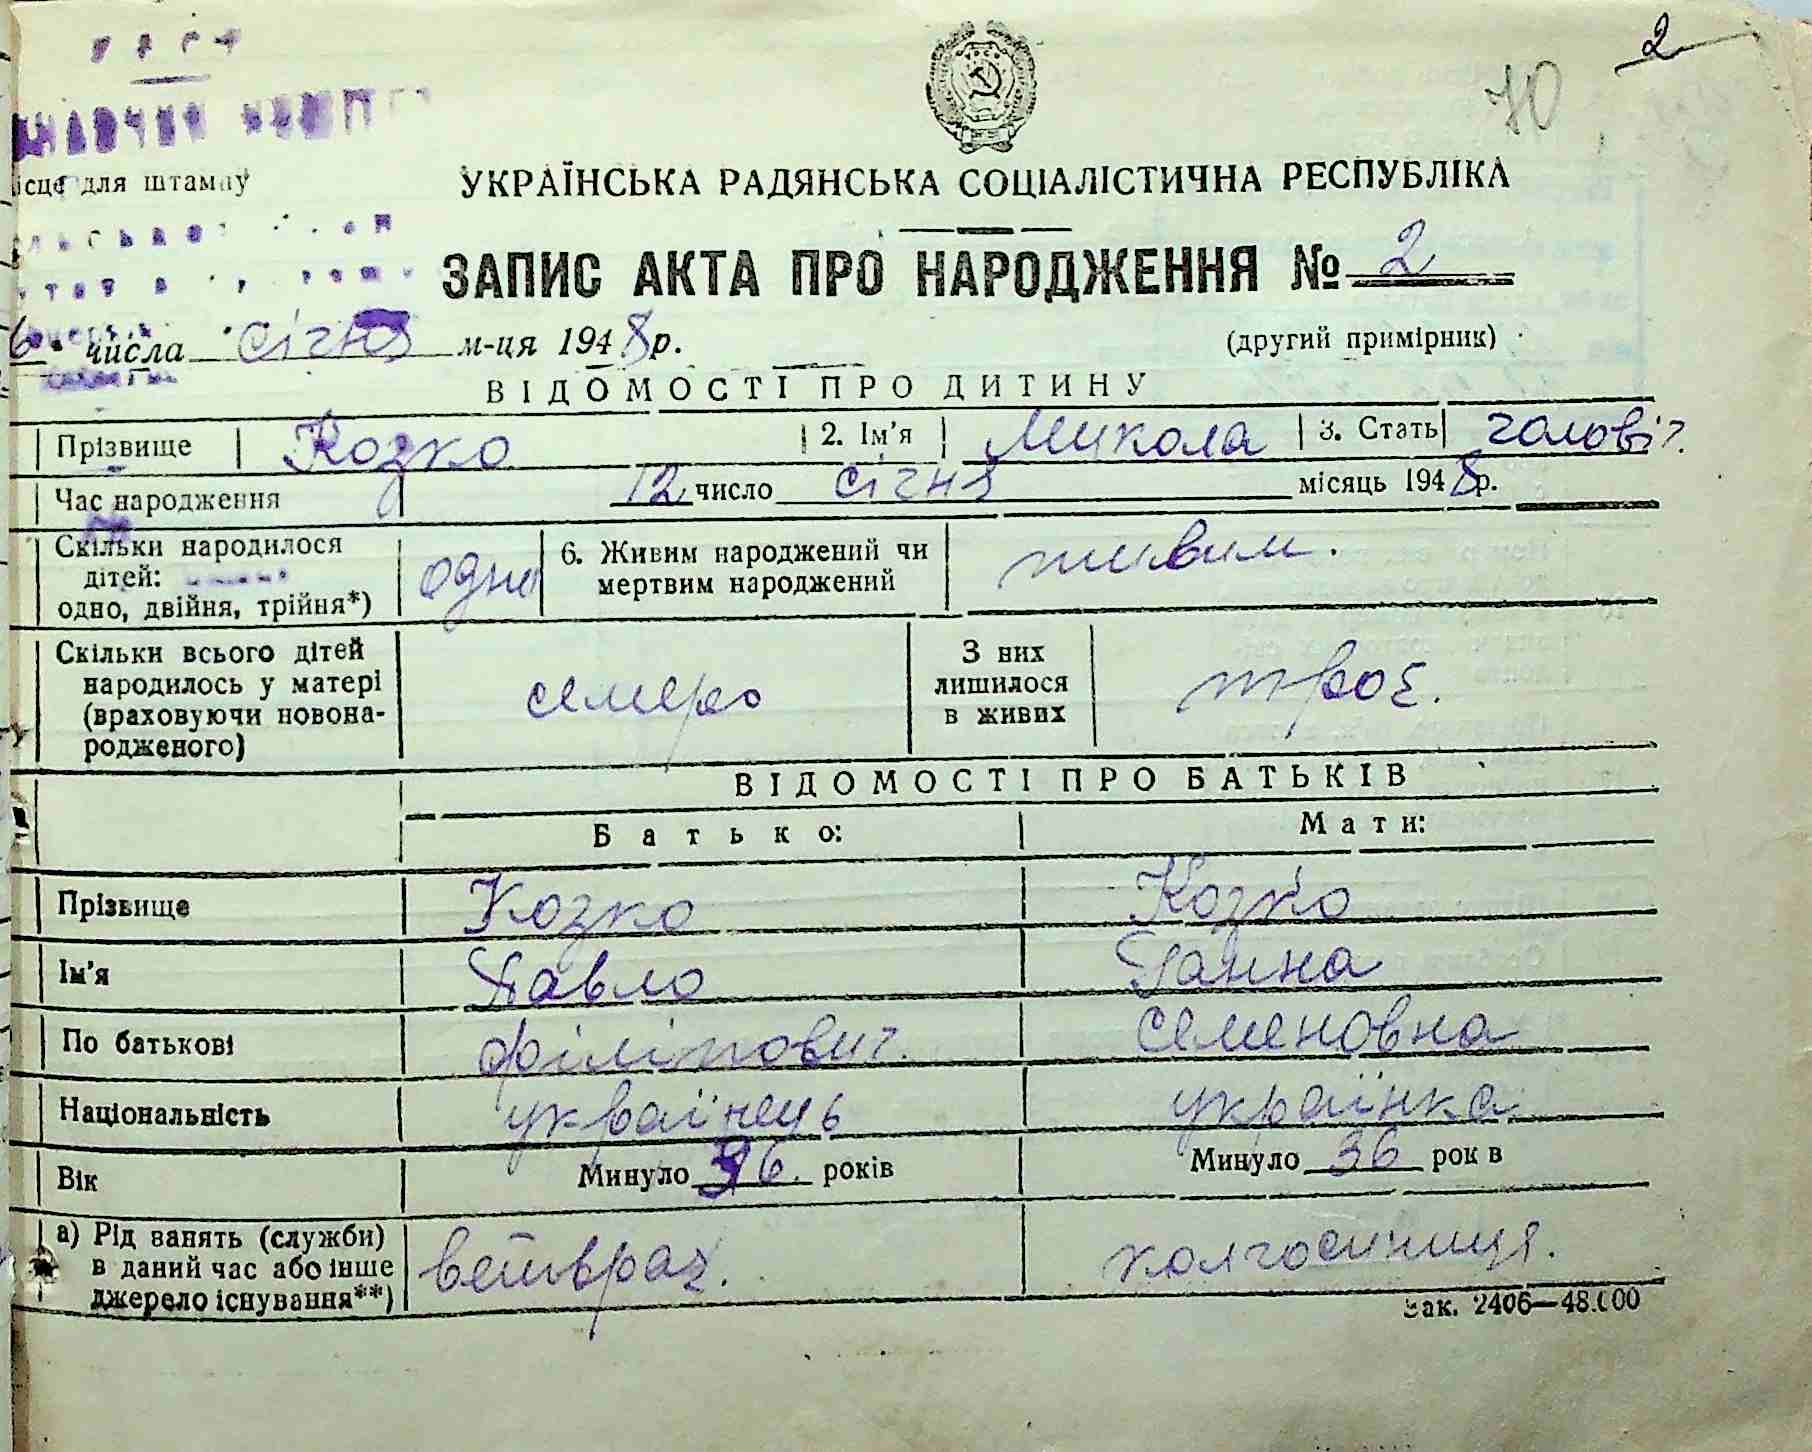 2
70
УРСР
місце для штампу
УКРАЇНСЬКА РАДЯНСЬКА СОЦІАЛІСТИЧНА РЕСПУБЛІКА
ЗАПИС АКТА ПРО НАРОДЖЕННЯ № 2
6 числа січня м-ця 1948 р.
(другий примірник)
ВІДОМОСТІ ПРО ДИТИНУ
Прізвище Козко 2. Ім'я Микола 3. Стать чоловіч.
Час народження 12 число січня місяць 1948 р.
Скільки народилося дітей: одно, двійня, трійня*) одно 6. Живим народжений чи мертвим народжений живим.
Скільки всього дітей народилось у матері (враховуючи новонародженого) семеро З них лишилося в живих троє.
ВІДОМОСТІ ПРО БАТЬКІВ
Батько: Мати:
Прізвище Козко Козко
Ім'я Павло Ганна
По батькові філіпович. Семеновна
Національність українець українка
Вік Минуло 36 років Минуло 36 рок в
а) Рід занять (служби) в даний час або інше джерело існування**) ветврач. колгоспниця.
Зак. 2406—48.000